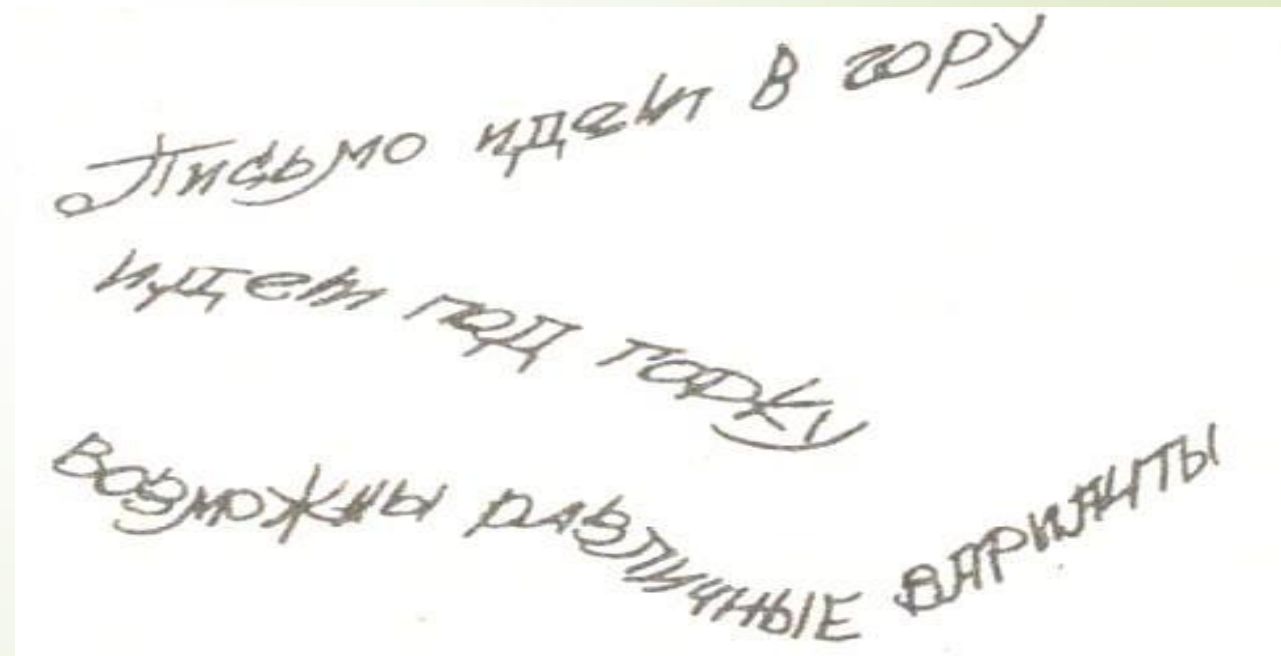 Письмо идет в гору
идет под горку
возможны различные ВАРИАНТЫ